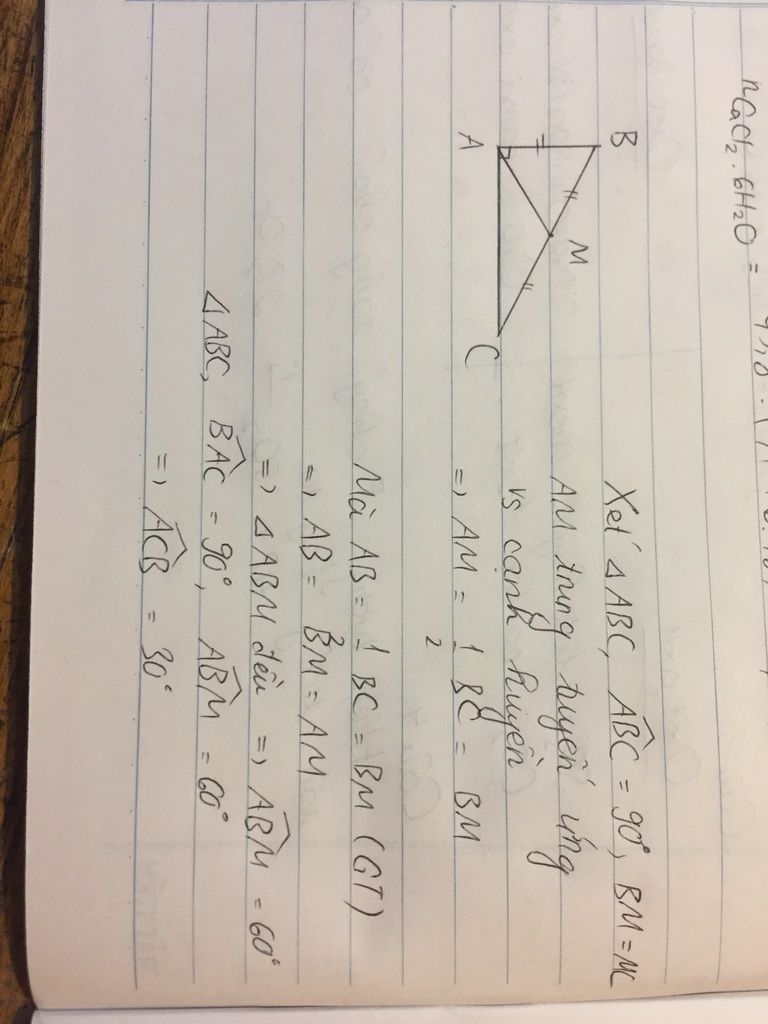 nCaCl₂.6H₂O =
B
M
A
C
Xét ΔABC, \widehat{ABC} = 90°, BM = MC
AM trung tuyến ứng
vs cạnh huyền
=> AM = 1/2 BC = BM
Mà AB = 1/2 BC = BM (GT)
=> AB = BM = AM
=> ΔABM đều => \widehat{ABM} = 60°
ΔABC, \widehat{BAC} = 90°, \widehat{ABM} = 60°
=> \widehat{ACB} = 30°